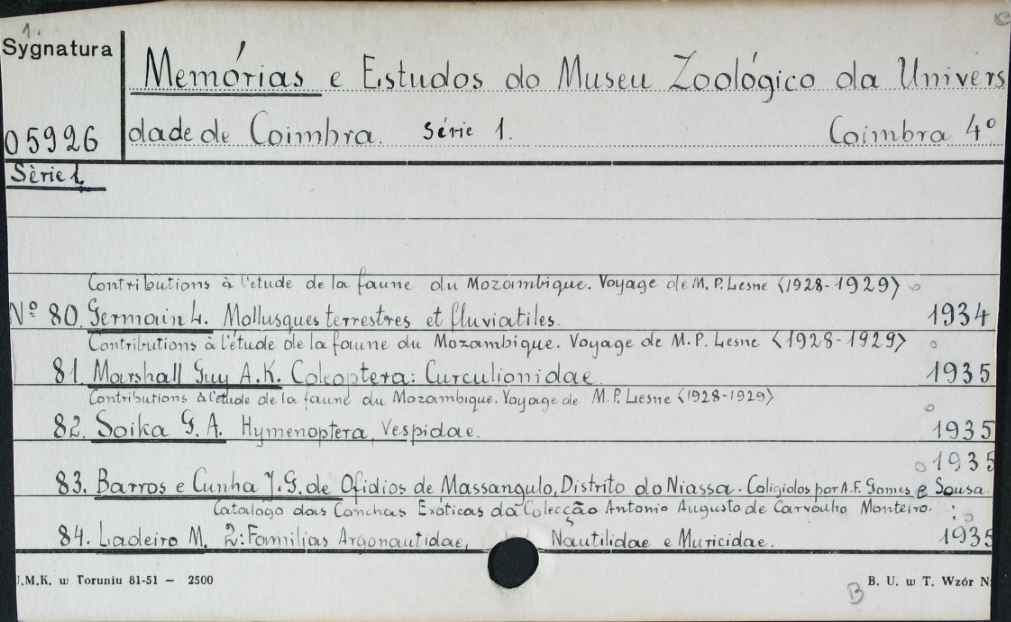 1.
Sygnatura
Memórias e Estudos do Museu Zoológico da Univers
05996
dade de Coimbra. Série 1. Coimbra 4º
Sèrie 1.
Contributions à l'etude de la faune du Mozambique. Voyage de M. P. Lesne (1928-1929)
Nº 80. Germain L. Mollusques terrestres et fluviatiles. 1934
Contributions à l'étude de la faune du Mozambique. Voyage de M. P. Lesne (1928-1929)
81. Marshall Guy A.K. Coleoptera: Curculionidae. 1935
Contributions à l'etude de la faune du Mozambique. Voyage de M. P. Lesne (1928-1929)
82. Soika G. A. Hymenoptera, Vespidae. 1935
1935
83. Barros e Cunha J. G. de Ofidios de Massangulo, Distrito do Niassa. Coligidos por A.F. Gomes e Sousa.
Catalogo das Conchas Exóticas da Colecção Antonio Augusto de Carvalho Monteiro.
84. Ladeiro M. 2: Familias Argonautidae, Nautilidae e Muricidae. 1935
U.M.K. w Toruniu 81-51 — 2500
B. U. w T. Wzór N
B